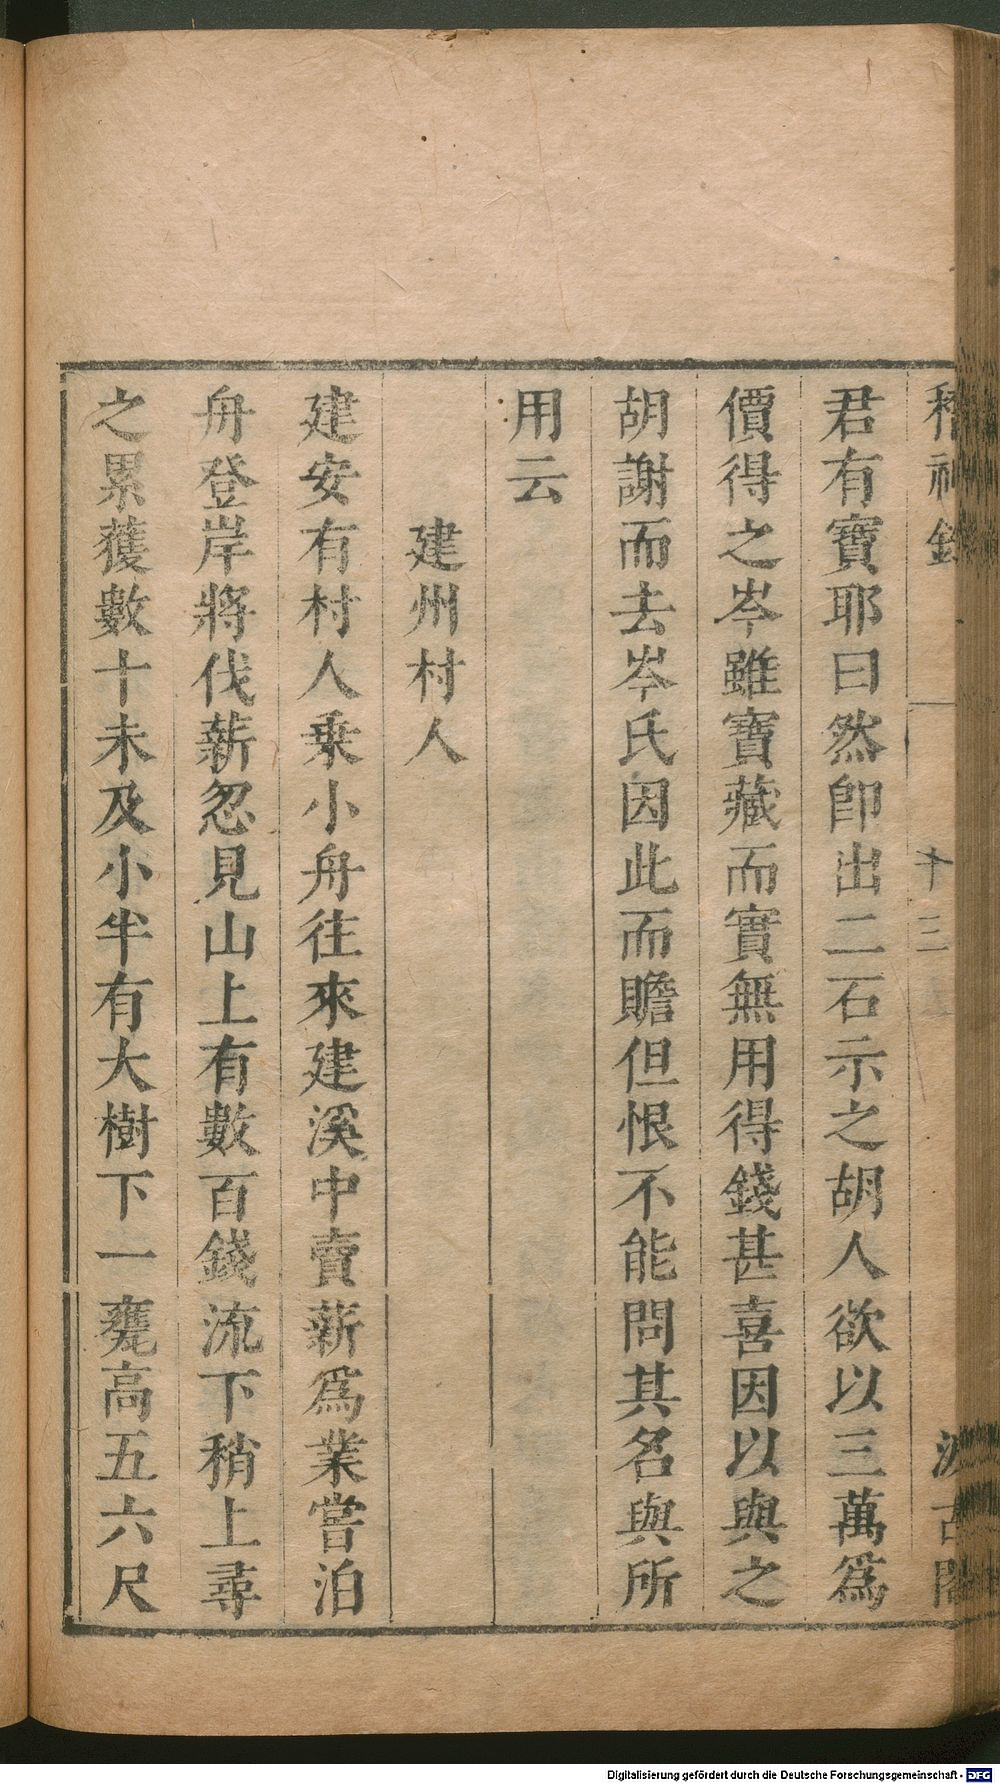 稽神錄
十三
汲古閣
君有寶耶曰然卽出二石示之胡人欲以三萬爲
價得之岑雖寶藏而實無用得錢甚喜因以與之
胡謝而去岑氏因此而贍但恨不能問其名與所
用云
建州村人
建安有村人乗小舟往來建溪中賣薪爲業嘗泊
舟登岸將伐薪忽見山上有數百錢流下稍上尋
之累獲數十未及小半有大樹下一甕高五六尺
Digitalisierung gefördert durch die Deutsche Forschungsgemeinschaft - DFG